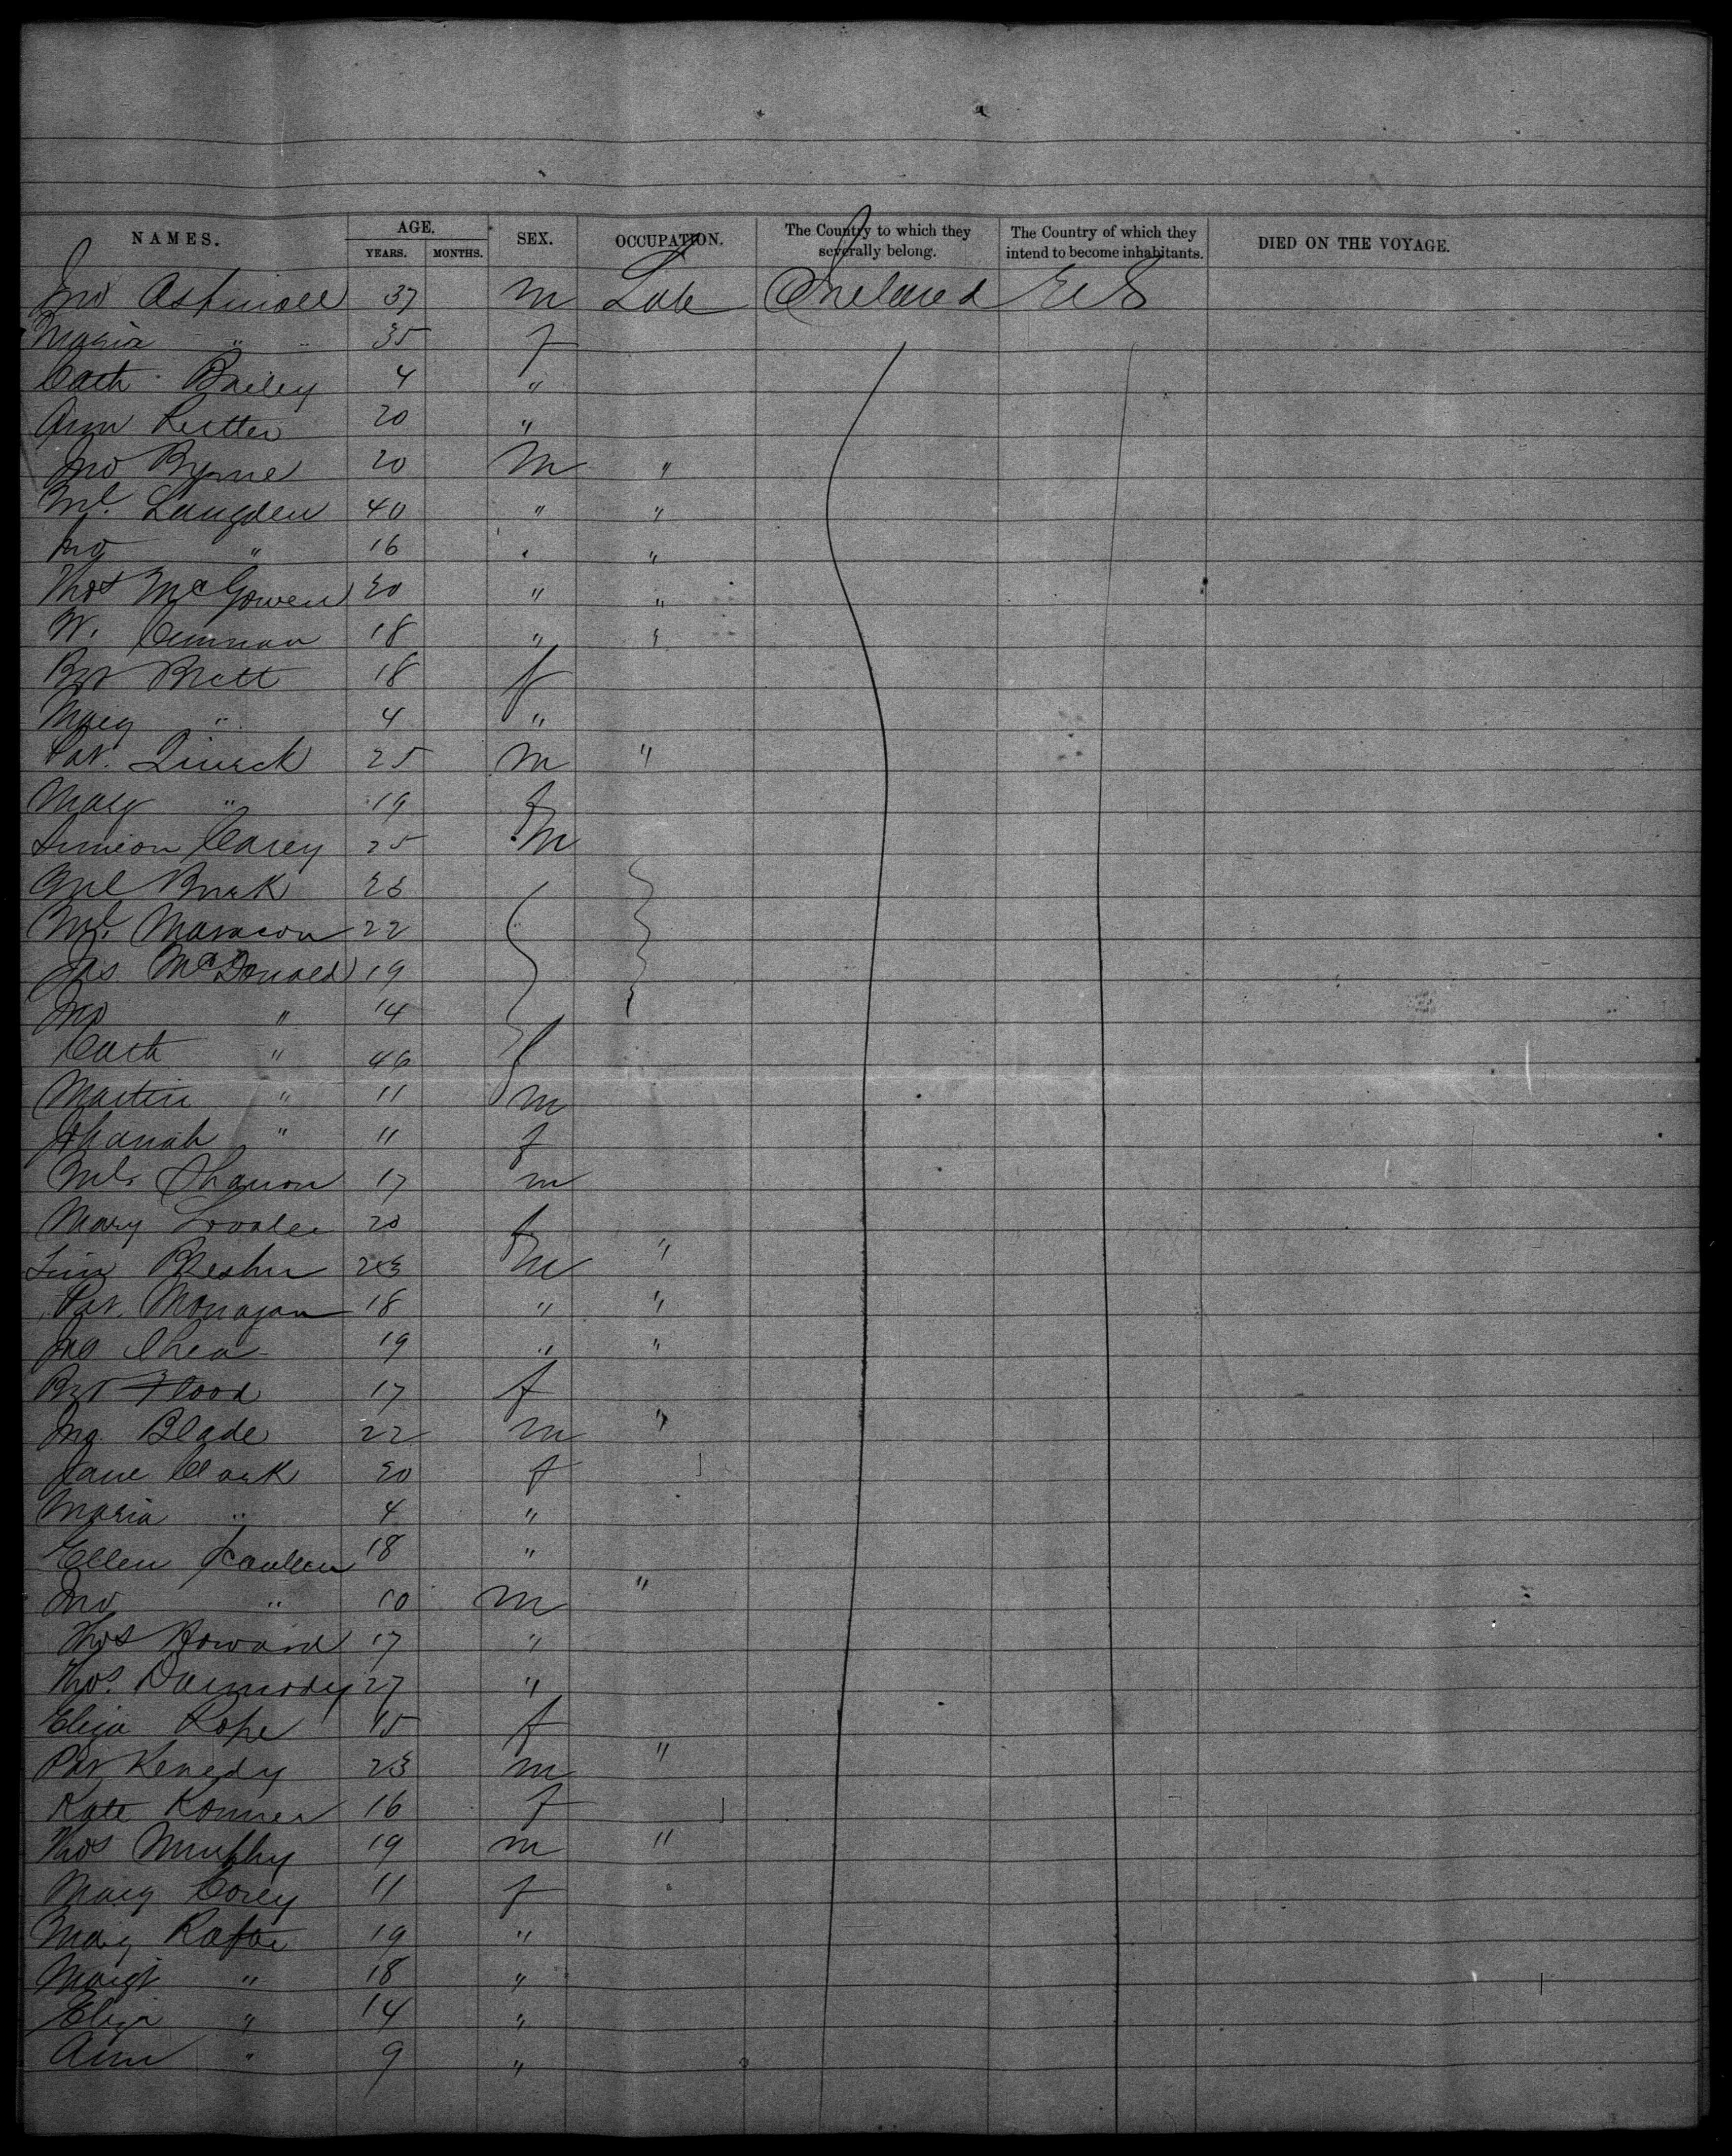 NAMES. AGE. SEX. OCCUPATION. The Country to which they severally belong. The Country of which they intend to become inhabitants. DIED ON THE VOYAGE.
YEARS. MONTHS.
Jno Aspinall 37 m Lab Ireland U S
Maria " 35 f
Cath Bailey 4 "
Ann Rutter 20 "
Jno Byrne 20 m "
Ml. Langden 40 " "
Jno " 16 " "
Thos McGowen 30 " "
W. 18 " "
Bgt Brett 18 f
Mary " 4 "
Pat. Quirck 25 m "
Mary " 19 f
Simeon Carey 25 m
22
Jas. McDonald 19
Jno " 14
Cath " 46 f
Martin " 11 m
Johanah " 11 f
Ml. Shanon 17 m
Mary 20 f
23 m "
Pat. Monagan 18 " "
Jno Shea 19 " "
Bgt Flood 17 f
Jno. Blade 22 m "
Jane Clark 30 f
Maria " 4 "
Ellen 18 "
Jno " 10 m "
Thos Howard 17 "
Thos. Darmody 27 "
Eliza Rope 15 f
Pat Kenedy 23 m "
Kate Konner 16 f
Thos Murphy 19 m "
Mary Corey 11 f
Mary 19 "
Margt " 18 "
Eliza " 14 "
Ann " 9 "